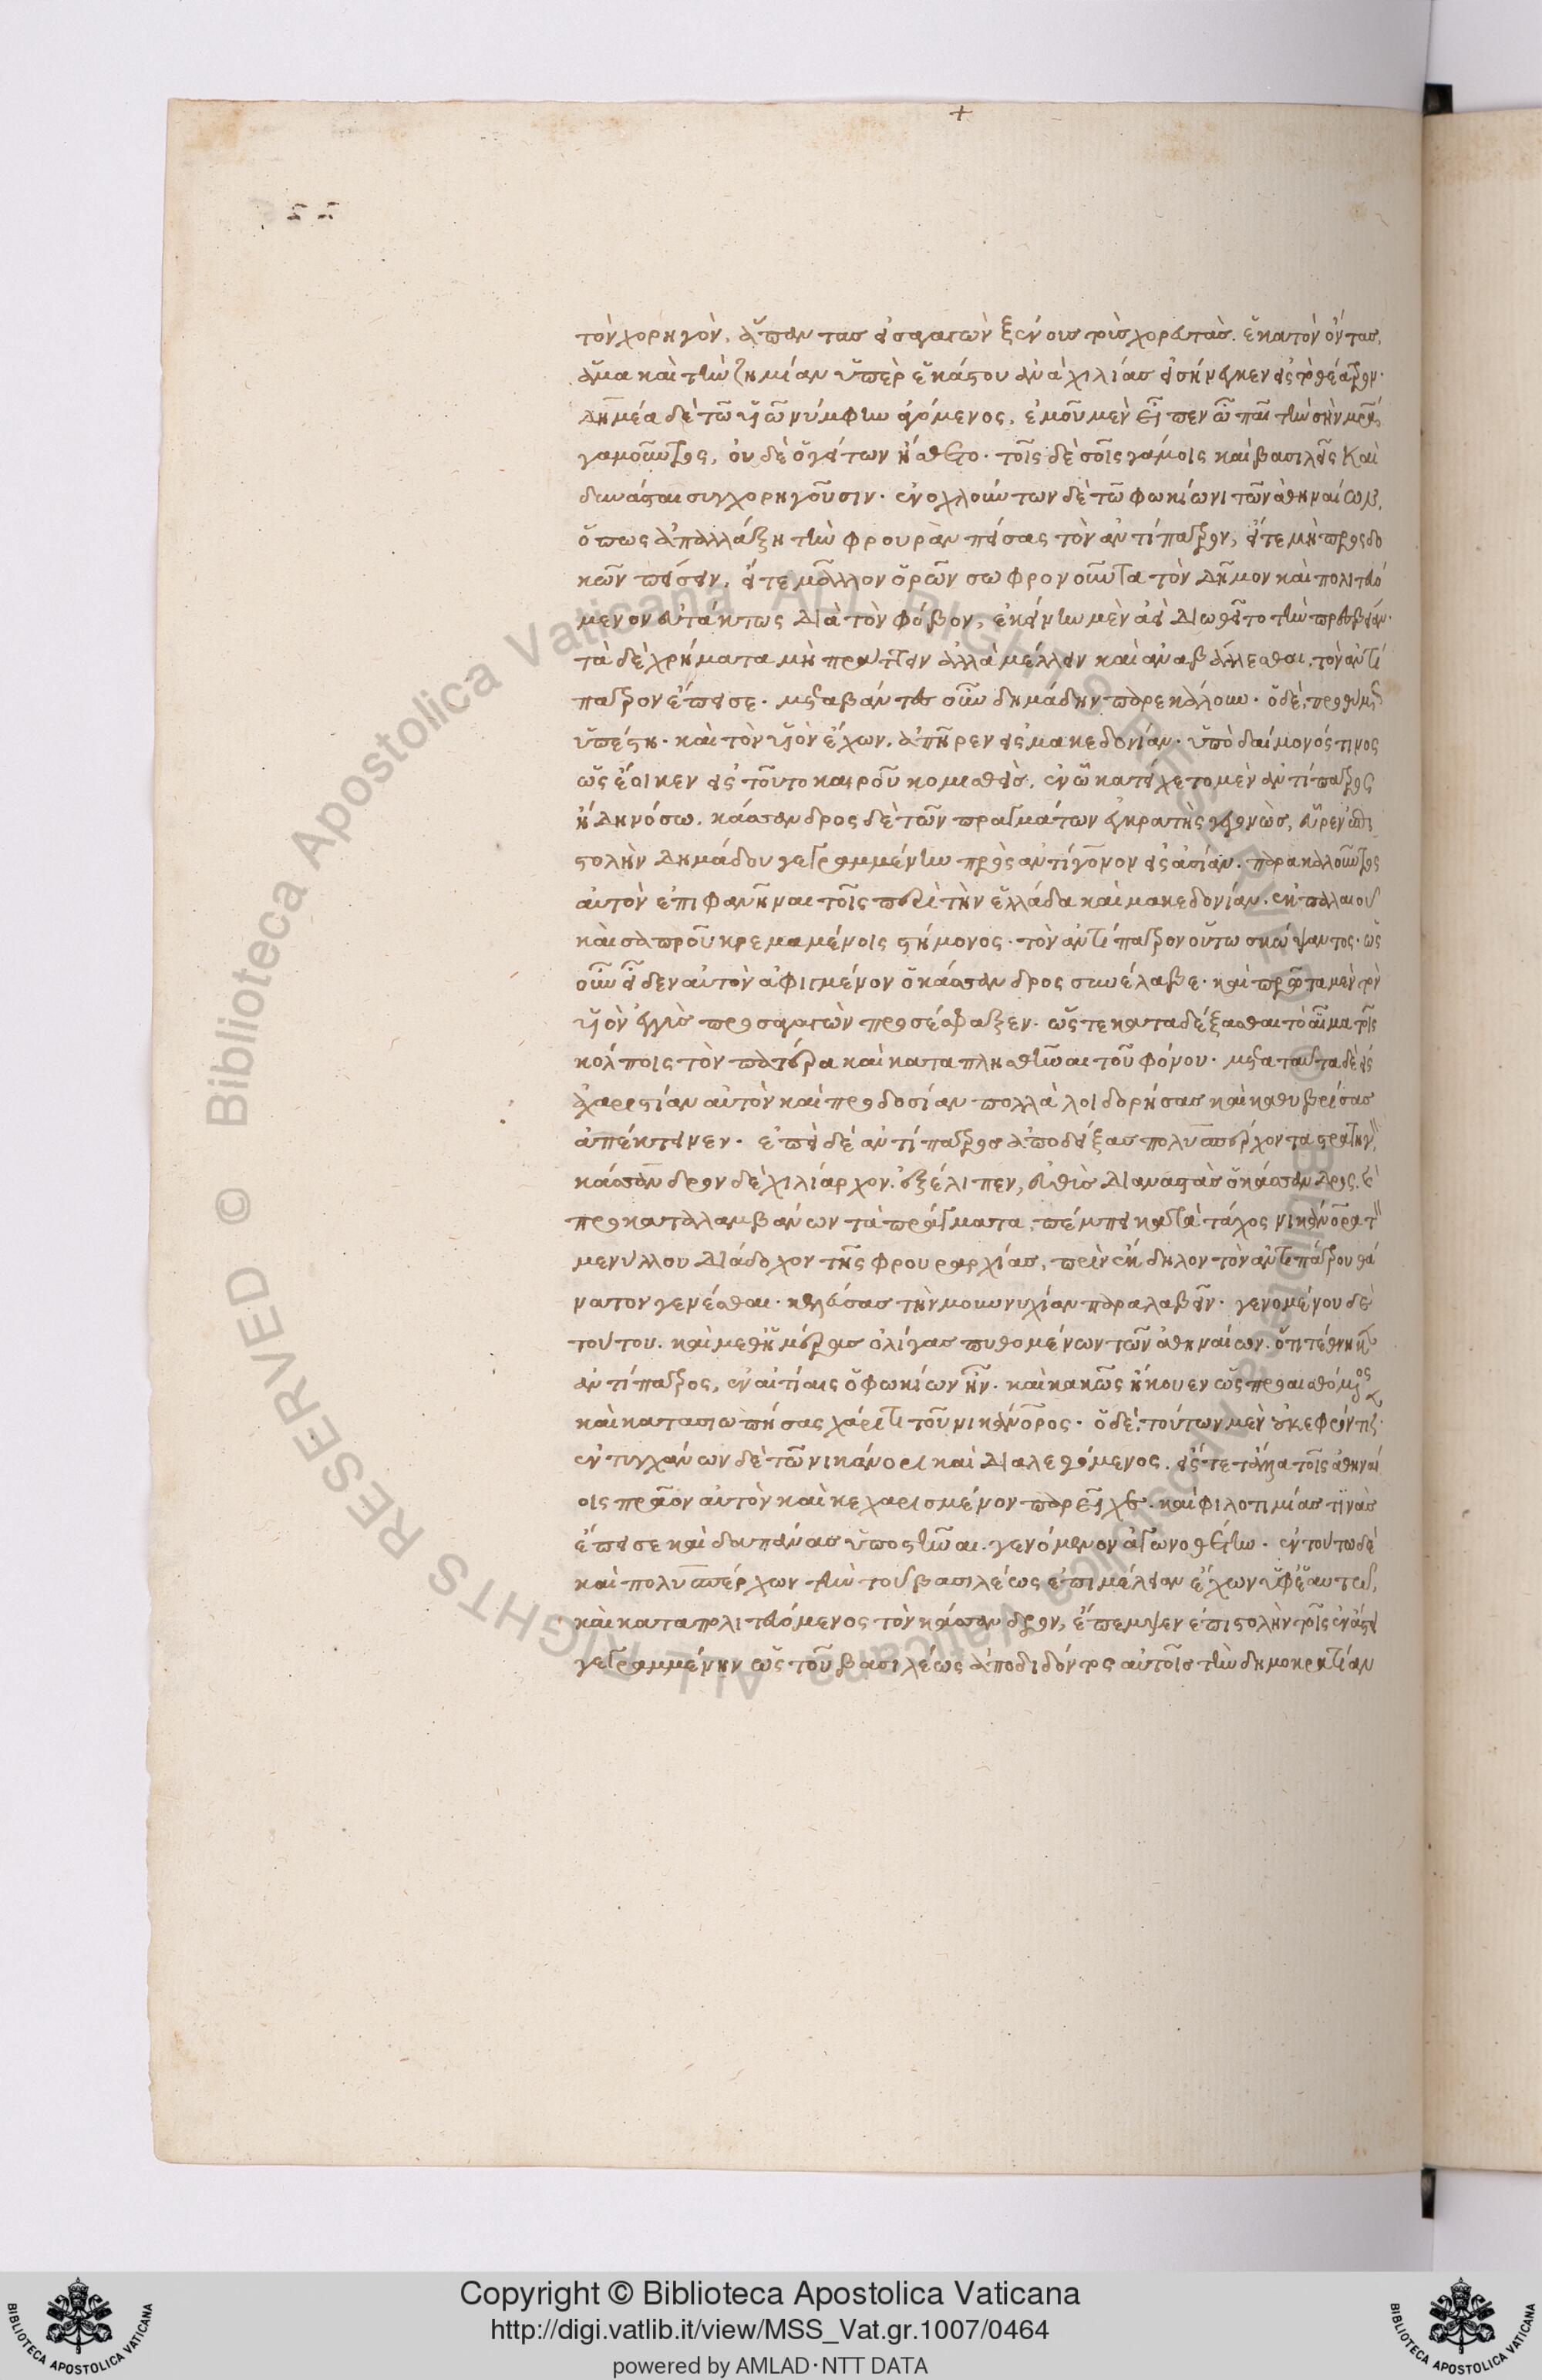 +
τὸν χορηγὸν, ἅπαντας εἰσαγαγὼν ξένους τοὺς χορευτὰς. ἑκατὸν ὄντας,
ἅμα καὶ τὴν ζημίαν ὑπὲρ ἑκάστου ἀνὰ χιλίας εἰσήνεγκεν εἰς τὸ θέατρον.
Δημέα δὲ τῶ υἱῶ νύμφην ἀγόμενος, ἐμοῦ μὲν εἶπεν ὦ παῖ τὴν σὴν μητέρα
γαμοῦντος, οὐδὲ ὁ γείτων ἤσθετο. τοῖς δὲ σοῖς γάμοις καὶ βασιλεῖς καὶ
δυνάσται συγχορηγοῦσιν. ἐνοχλούντων δὲ τῶ φωκίωνι τῶν ἀθηναίων,
ὅπως ἀπαλλάξη τὴν φρουρὰν πείσας τὸν ἀντίπατρον, εἴτε μὴ προσδο
κῶν πείσειν, εἴτε μᾶλλον ὁρῶν σωφρονοῦντα τὸν δῆμον καὶ πολιτευό
μενον εὐτάκτως διὰ τὸν φόβον, ἐκείνην μὲν ἀεὶ διωθεῖτο τὴν πρεσβείαν.
τὰ δὲ χρήματα μὴ πράττειν ἀλλὰ μέλλειν καὶ ἀναβάλλεσθαι, τὸν ἀντί
πατρον ἔπεισε. μεταβάντες οὖν δημάδην παρεκάλουν. ὁ δὲ, προθύμως
ὑπέστη. καὶ τὸν υἱὸν ἔχων, ἀπῆρεν εἰς μακεδονίαν. ὑπὸ δαίμονός τινος
ὡς ἔοικεν εἰς τοῦτο καιροῦ κομισθεὶς, ἐν ὧ κατείχετο μὲν ἀντίπατρος
ἤδη νόσω. κάσσανδρος δὲ τῶν πραγμάτων ἐγκρατὴς γεγονὼς, εὗρεν ἐπι
στολὴν Δημάδου γεγραμμένην πρὸς ἀντίγονον εἰς ἀσίαν. παρακαλοῦντος
αὐτὸν ἐπιφανῆναι τοῖς περὶ τὴν ἑλλάδα καὶ μακεδονίαν. ἐκ παλαιοῦ
καὶ σαπροῦ κρεμαμένοις στήμονος. τὸν ἀντίπατρον οὕτω σκώψαντος. ὡς
οὖν εἶδεν αὐτὸν ἀφιγμένον ὁ κάσσανδρος συνέλαβε. καὶ πρῶτα μὲν τὸν
υἱὸν ἐγγὺς προσαγαγὼν προσέσφαξεν. ὥστε καταδέξασθαι τὸ αἷμα τοῖς
κόλποις τὸν πατέρα καὶ καταπλησθῆναι τοῦ φόνου. μετὰ ταῦτα δὲ εἰς
ἀχαριστίαν αὐτὸν καὶ προδοσίαν πολλὰ λοιδορήσας καὶ καθυβρίσας
ἀπέκτεινεν. ἐπεὶ δὲ ἀντίπατρος ἀποδείξας πολυσπέρχοντα στρατηγὸν,
κάσσανδρον δὲ χιλίαρχον, ἐξέλιπεν, εὐθὺς διαναστὰς ὁ κάσσανδρος. καὶ
προκαταλαμβάνων τὰ πράγματα, πέμπει κατὰ τάχος νικάνορα τ῀
μενύλλου διάδοχον τῆς φρουραρχίας, πρὶν ἔκδηλον τὸν ἀντιπάτρου θά
νατον γενέσθαι. κελεύσας τὴν μουνυχίαν παραλαβεῖν. γενομένου δὲ
τούτου. καὶ μεθ' ἡμέρας ὀλίγας πυθομένων τῶν ἀθηναίων. ὅτι τέθνηκεν
ἀντίπατρος, ἐν αἰτίαις ὁ φωκίων ἦν. καὶ κακῶς ἤκουεν ὡς προαισθόμενος
καὶ κατασιωπήσας χάριτι τοῦ νικάνορος. ὁ δὲ, τούτων μὲν οὐκ ἐφρόντιζεν.
ἐντυγχάνων δὲ τῶ νικάνορι καὶ διαλεγόμενος, εἴς τε τἄλλα τοῖς ἀθηναί
οις πρᾶον αὐτὸν καὶ κεχαρισμένον παρεῖχε. καὶ φιλοτιμίας τινὰς
ἔπεισε καὶ δαπάνας ὑποστῆναι. γενόμενον ἀγωνοθέτην. ἐν τούτω δὲ
καὶ πολυσπέρχων τὴν τοῦ βασιλέως ἐπιμέλειαν ἔχων ὑφ' ἑαυτῶ,
καὶ καταπολιτευόμενος τὸν κάσσανδρον, ἔπεμψεν ἐπιστολὴν τοῖς ἐν ἄστει
γεγραμμένην ὡς τοῦ βασιλέως ἀποδιδόντος αὐτοῖς τὴν δημοκρατίαν
© Biblioteca Apostolica Vaticana ALL RIGHTS RESERVED
© Biblioteca Apostolica Vaticana ALL RIGHTS RESERVED
Copyright © Biblioteca Apostolica Vaticana
http://digi.vatlib.it/view/MSS_Vat.gr.1007/0464
powered by AMLAD·NTT DATA
BIBLIOTECA APOSTOLICA VATICANA
BIBLIOTECA APOSTOLICA VATICANA